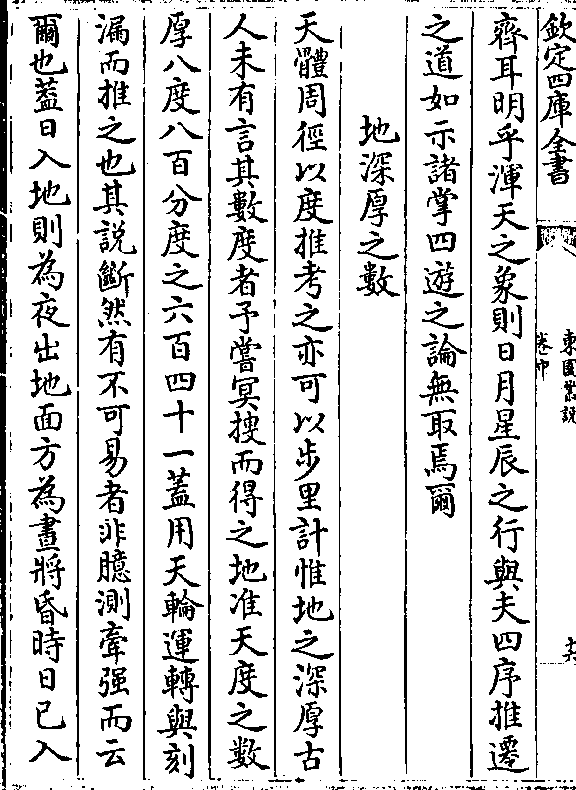 欽定四庫全書
東園叢說
卷中
十六
齊耳明乎渾天之象則日月星辰之行與夫四序推遷
之道如示諸掌四遊之論無取焉爾
地深厚之數
天體周徑以度推考之亦可以步里計惟地之深厚古
人未有言其數度者予嘗冥搜而得之地准天度之數
厚八度八百分度之六百四十一蓋用天輪運轉與刻
漏而推之也其說斷然有不可易者非臆測牽强而云
爾也蓋日入地則為夜出地面方為晝將昏時日已入